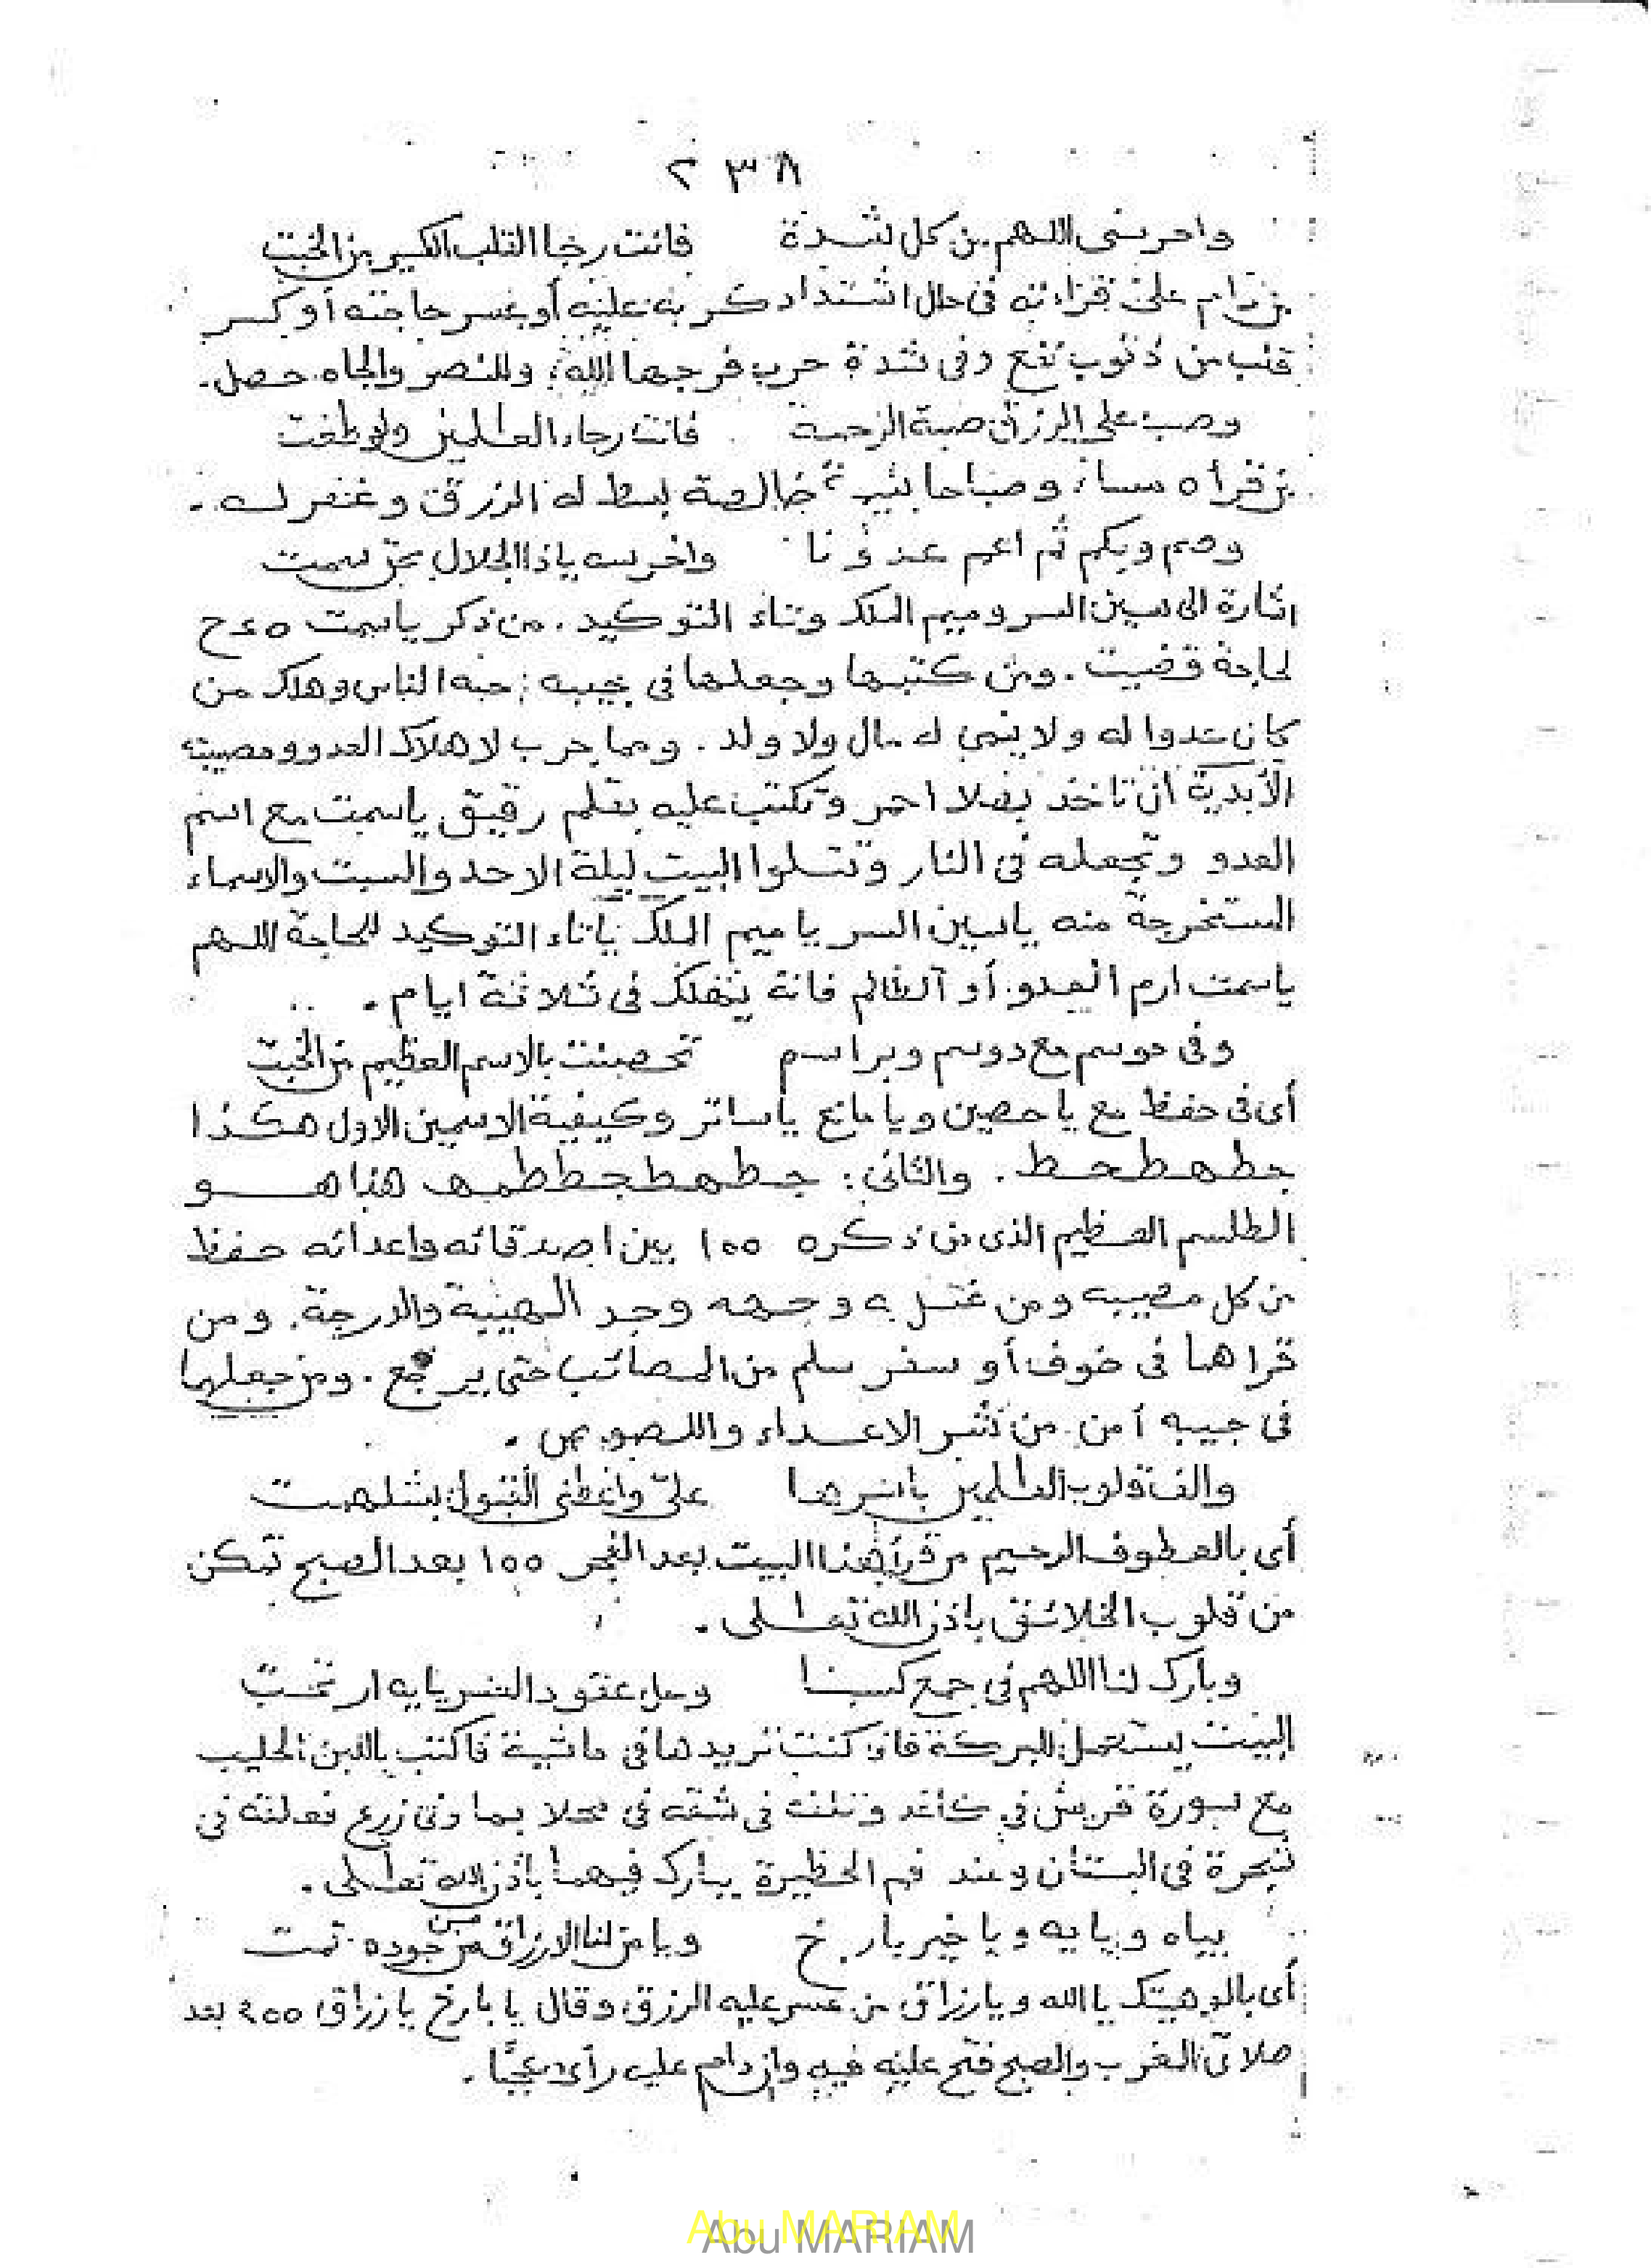 ٢٣٨
واحرسنى اللهم من كل شدة فانت رجا القلب الكسير من الخبت
من دام على قراءته فى حال اشتداد كربه عليه أو عسر حاجته أو كسر
قلب من ذنوب نفع وفى شدة حرب فرجها الله، وللنصر والجاه حصل.
وصب على الرزق صبة الرحمة فانت رجاء العالمين ولو طغت
من قرأه مساء وصباحا بنية خالصة بسط له الرزق وغفر له.
وصم وبكم ثم اعم عدونا واخرسه ياذا الجلال بحق سمت
اشارة الى سين السر وميم الملك وتاء التوكيد. من ذكر ياسمت
لحاجة قضيت. ومن كتبها وجعلها فى جيبه حبه الناس وهلك من
كان عدوا له ولا ينمى له مال ولا ولد. ومما جرب لاهلاك العدو ومصيبته
الأبدية أن تاخذ بصلا احمر وتكتب عليه بقلم رقيق ياسمت مع اسم
العدو وتجعله فى النار وتتلوا البيت ليلة الاحد والسبت والاسماء
المستخرجة منه ياسين السر ياميم الملك ياتاء التوكيد للحاجة اللهم
ياسمت ارم العدو أو الظالم فانه يهلك فى ثلاثة ايام.
وفى حوسم مع دوسم وبراسم تحصنت بالاسم العظيم من الخبت
أى فى حفظ مع ياحصين ويامانع ياساتر وكيفية الاسمين الاول هكذا
والثانى: هذا هو
الطلسم العظيم الذى من ذكره ١٠٠ بين اصدقائه واعدائه حفظ
من كل مصيبه ومن غسل به وجهه وجد الهيبة والدرجة. ومن
قراها فى خوف أو سفر سلم من المصائب حتى يرجع. ومن جعلها
فى جيبه أمن من شر الاعداء واللصوص.
والف قلوب العالمين باسرها على واعطنى القبول بشلهمت
أى بالعطوف الرحيم من قرأ هذا البيت بعد الفجر ١٠٠ بعد الصبح تمكن
من قلوب الخلائق باذن الله تعالى.
وبارك لنا اللهم فى جمع كسبنا وحل عقود العسر يايه ارمخت
البيت يستعمل للبركة فان كنت تريدها فى ماشية فاكتب باللبن الحليب
مع سورة قريش فى كاغد فى شقه فى وفى زرع فعلقه فى
شجرة فى البستان وعند فم الحظيرة يبارك فيهما باذن الله تعالى.
بياه ويايه ويا خير بارخ ويا من لنا الارزاق من جوده نمت
أى بالوهيتك ياالله ويارزاق من عسر عليه الرزق وقال يا بارخ يا رزاق ٤٠٠ بعد
صلاتى المغرب والصبح فتح عليه فيه وان دام عليه رأى عجبًا.
Abu MARIAM
Abu MARIAM